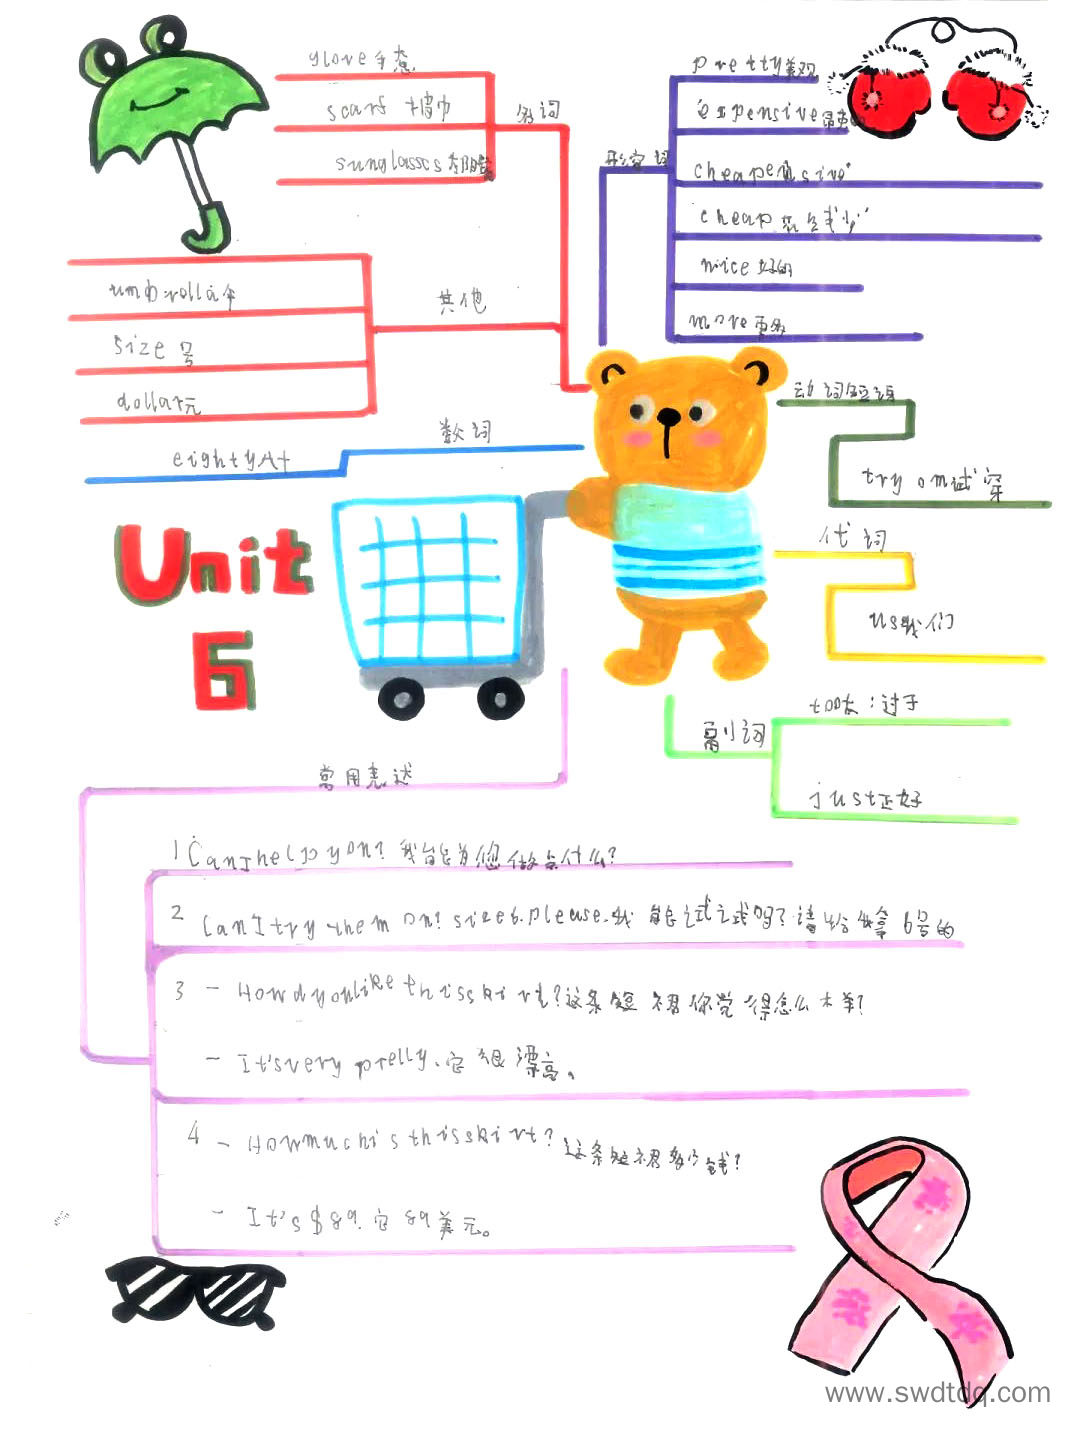 glove手套
scarf 披巾
sunglasses太阳镜
名词
umbrella伞
size 号
dollar元
其他
eighty八十
数词
pretty美观
expensive昂贵的
cheapensive
cheap 花钱少
nice 好的
more 更多
形容词
动词短语
try on试穿
代词
us我们
副词
too太：过于
just正好
Unit
6
常用表达
1 Can I help you? 我能为您做点什么?
2 Can I try them on? size 6. please. 我能试试吗? 请给我拿6号的
3 - How do you like this skirt? 这条短裙你觉得怎么样?
- It's very pretty. 它很漂亮。
4 - How much is this skirt? 这条短裙多少钱?
- It's $89. 它89美元。
www.swdtdq.com